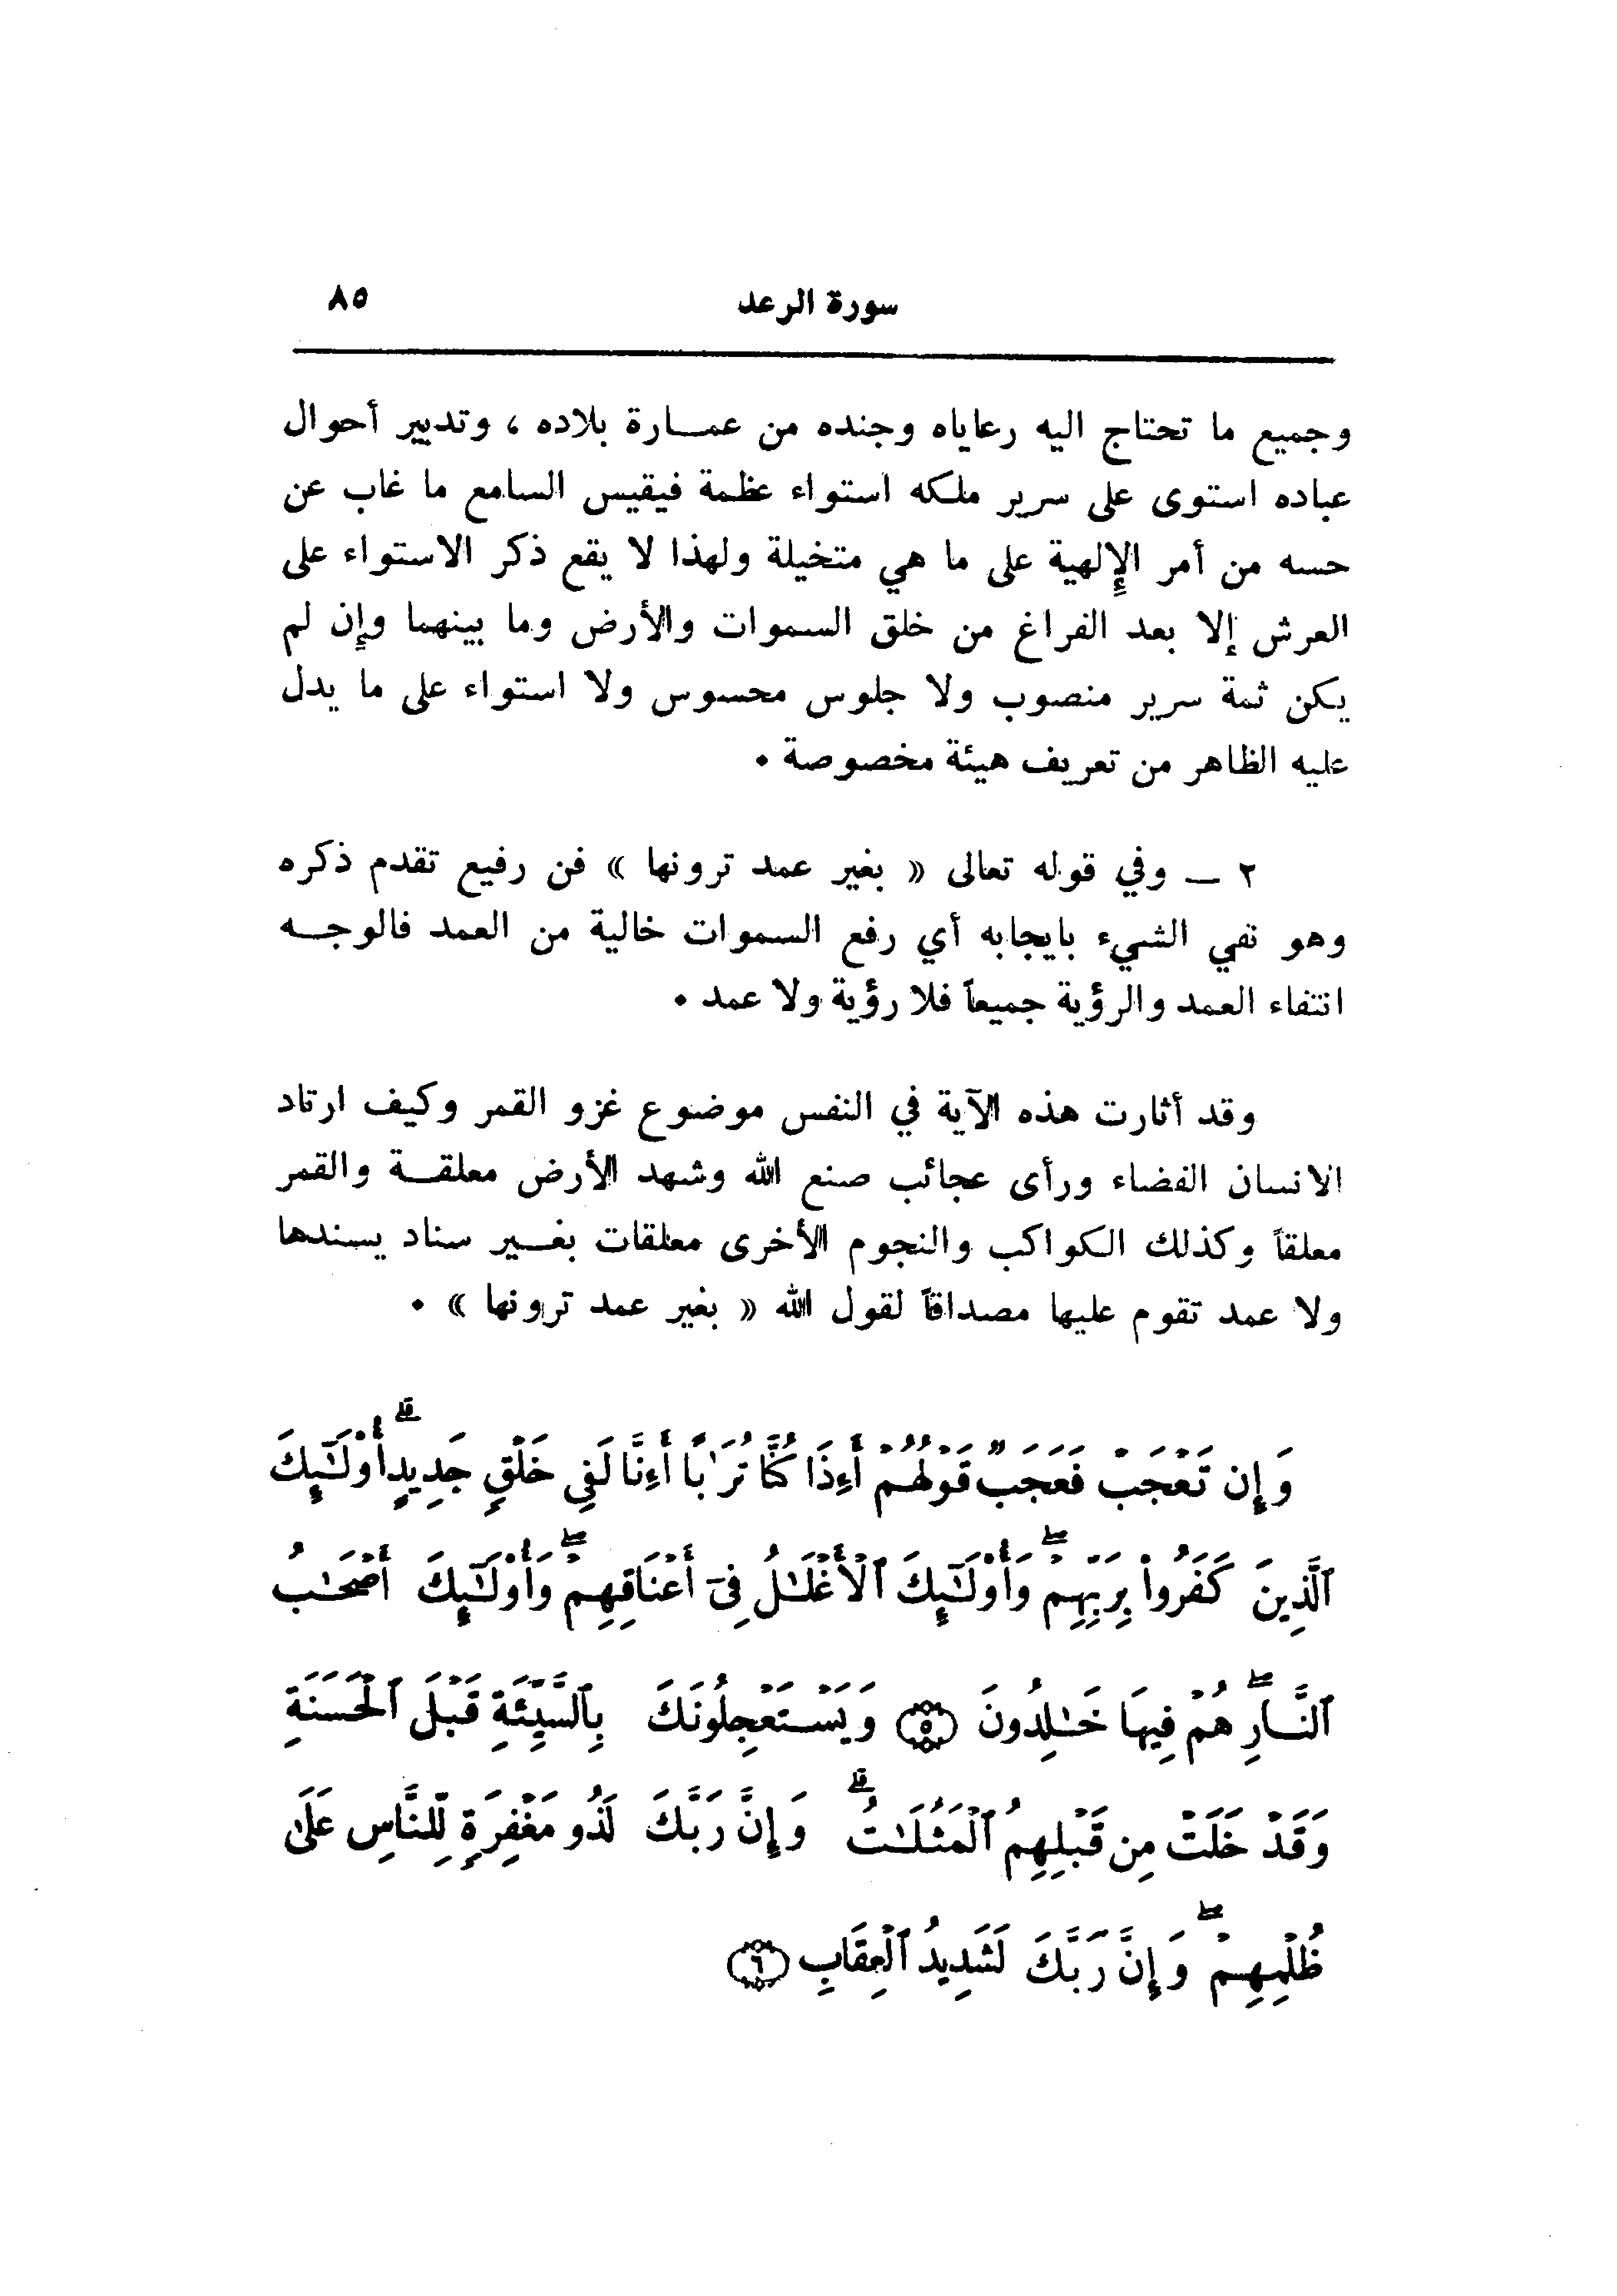 سورة الرعد ٨٥
وجميع ما تحتاج اليه رعاياه وجنده من عمــارة بلاده ، وتدبير أحوال
عباده استوى على سرير ملكه استواء عظمة فيقيس السامع ما غاب عن
حسه من أمر الإلهية على ما هي متخيلة ولهذا لا يقع ذكر الاستواء على
العرش إلا بعد الفراغ من خلق السموات والأرض وما بينهما وإن لم
يكن ثمة سرير منصوب ولا جلوس محسوس ولا استواء على ما يدل
عليه الظاهر من تعريف هيئة مخصوصة .
٢ ــ وفي قوله تعالى « بغير عمد ترونها » فن رفيع تقدم ذكره
وهو نفي الشيء بايجابه أي رفع السموات خالية من العمد فالوجــه
انتفاء العمد والرؤية جميعاً فلا رؤية ولا عمد .
وقد أثارت هذه الآية في النفس موضوع غزو القمر وكيف ارتاد
الانسان الفضاء ورأى عجائب صنع الله وشهد الأرض معلقــة والقمر
معلقاً وكذلك الكواكب والنجوم الأخرى معلقات بغــير سناد يسندها
ولا عمد تقوم عليها مصداقاً لقول الله « بغير عمد ترونها » .
وَإِن تَعْجَبْ فَعَجَبٌ قَوْلُهُمْ أَءِذَا كُنَّا تُرَٰبًا أَءِنَّا لَفِى خَلْقٍ جَدِيدٍ ۗ أُوْلَـٰٓئِكَ
ٱلَّذِينَ كَفَرُواْ بِرَبِّهِمْ ۖ وَأُوْلَـٰٓئِكَ ٱلْأَغْلَـٰلُ فِىٓ أَعْنَاقِهِمْ ۖ وَأُوْلَـٰٓئِكَ أَصْحَـٰبُ
ٱلنَّارِ ۖ هُمْ فِيهَا خَـٰلِدُونَ ٥ وَيَسْتَعْجِلُونَكَ بِٱلسَّيِّئَةِ قَبْلَ ٱلْحَسَنَةِ
وَقَدْ خَلَتْ مِن قَبْلِهِمُ ٱلْمَثُلَـٰتُ ۗ وَإِنَّ رَبَّكَ لَذُو مَغْفِرَةٍ لِّلنَّاسِ عَلَىٰ
ظُلْمِهِمْ ۖ وَإِنَّ رَبَّكَ لَشَدِيدُ ٱلْعِقَابِ ٦